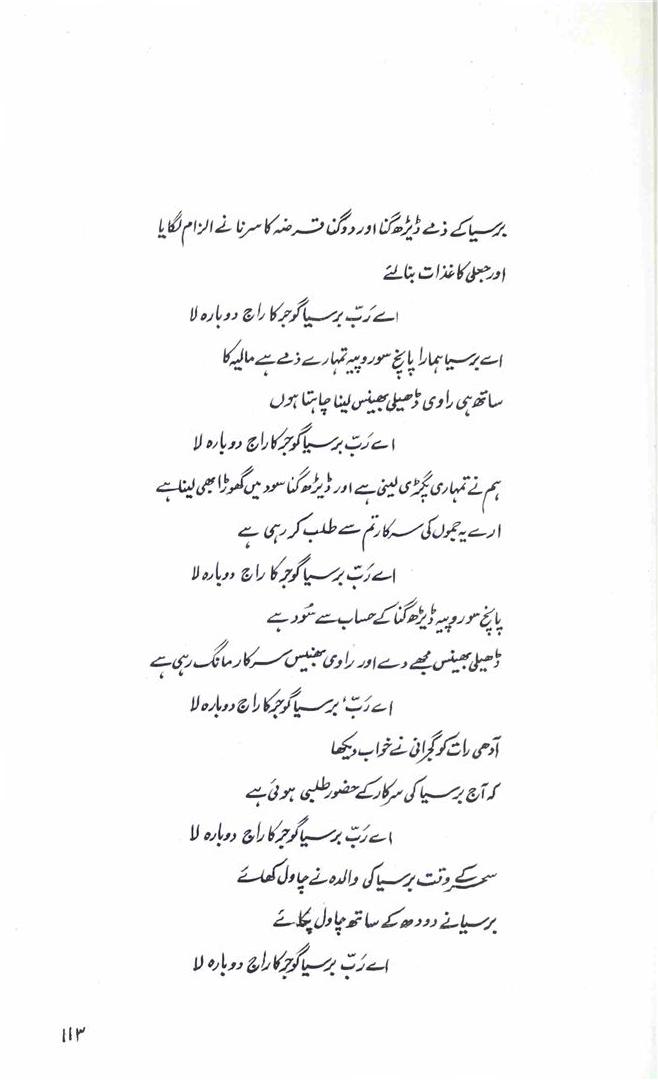 برسیا کے ذمے ڈیڑھ گنا اور دوگنا قرضہ کا سرنا نے الزام لگایا
اور جعلی کاغذات بنا لئے
اے رَبّ برسیا گوجر کا راج دوبارہ لا
اے برسیا ہمارا پانچ سو روپیہ تمہارے ذمے ہے مالیہ کا
ساتھ ہی راوی ڈھیلی بھینس لینا چاہتا ہوں
اے رَبّ برسیا گوجر کا راج دوبارہ لا
ہم نے تمہاری پگڑی لینی ہے اور ڈیڑھ گنا سود میں گھوڑا بھی لینا ہے
ارے یہ جموں کی سرکار تم سے طلب کر رہی ہے
اے رَبّ برسیا گوجر کا راج دوبارہ لا
پانچ سو روپیہ ڈیڑھ گنا کے حساب سے سُود ہے
ڈھیلی بھینس مجھے دے اور راوی بھینس سرکار مانگ رہی ہے
اے رَبّ، برسیا گوجر کا راج دوبارہ لا
آدھی رات کو گجرانی نے خواب دیکھا
کہ آج برسیا کی سرکار کے حضور طلبی ہوئی ہے
اے رَبّ برسیا گوجر کا راج دوبارہ لا
سحر کے وقت برسیا کی والدہ نے چاول کھلائے
برسیا نے دودھ کے ساتھ چاول پکائے
اے رَبّ برسیا گوجر کا راج دوبارہ لا
۱۱۳